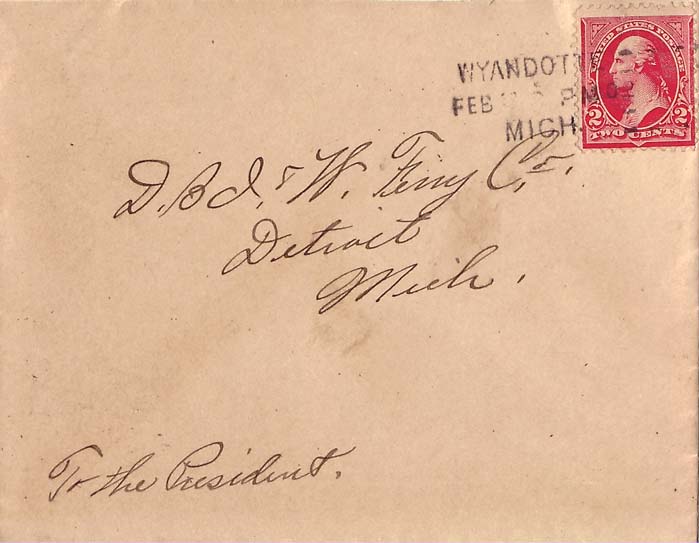 UNITED STATES POSTAGE
2 2
TWO CENTS
WYANDOTT
FEB 5 PM 02
MICH
D. B. I. & W. Ferry Co.
Detroit
Mich.
To the President.